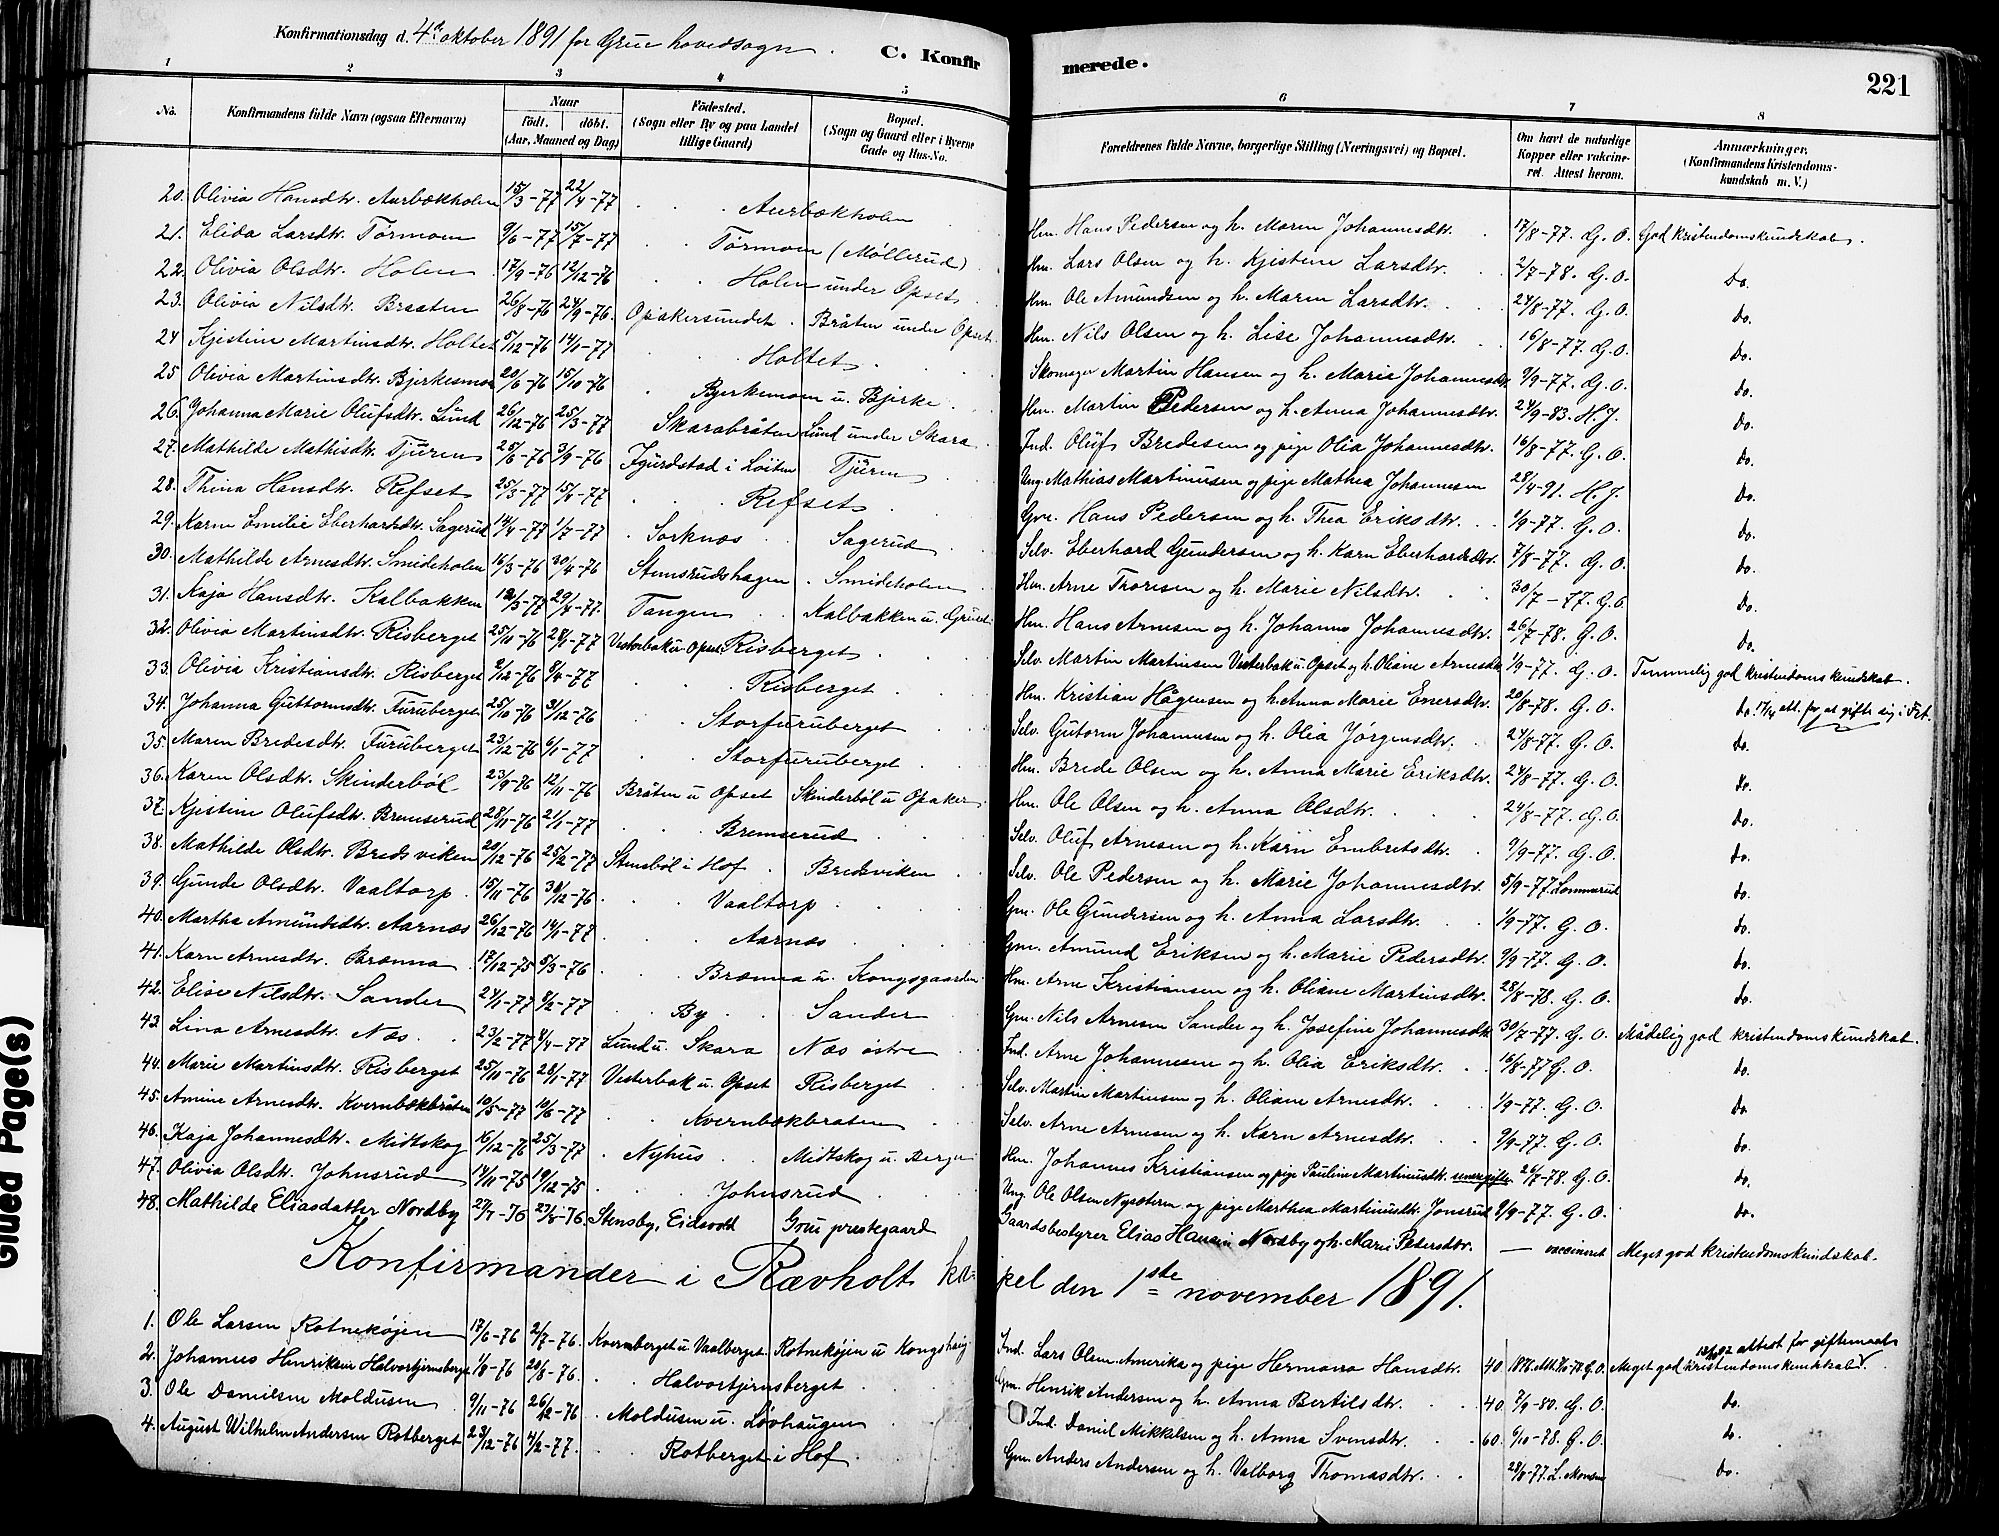 Konfirmationsdag d. 4de oktober 1891 for Grue hovedsogn. C. Konfirmerede. 221
1 2 3 4 5 6 7 8
No. Konfirmandens fulde Navn (ogsaa Efternavn) Naar födt. döbt. (Aar, Maaned og Dag) Födested. (Sogn eller By og paa Landet tillige Gaard) Bopæl. (Sogn og Gaard eller i Byerne Gade og Hus-No. Forældrenes fulde Navne, borgerlige Stilling (Næringsvei) og Bopæl. Om havt de naturlige Kopper eller vakcineret. Attest herom. Anmærkninger. (Konfirmandens Kristendomskundskab m. V.)
20. Olivia Hansdtr. Aurbækholen 15/3-77 22/4-77 Aurbækholen Hm. Hans Pedersen og h. Maren Johannesdtr. 17/8-77. G. O. God kristendomskundskab.
21. Elida Larsdtr. Tørmoen 9/6-77 15/7-77 Tørmoen (Møllerud) Hm. Lars Olsen og h. Kjistine Larsdtr. 2/7-78. G. O. Do.
22. Olivia Olsdtr. Holen 17/9-76 12/12-76 Holen under Opset Hm. Ole Amundsen og h. Maren Larsdtr. 24/8-77. G. O. Do.
23. Olivia Nilsdtr. Braaten 26/8-76 24/9-76. Opakersundet. Bråten under Opset. Hm. Nils Olsen og h. Lise Johannesdtr. 16/8-77. G. O. Do.
24 Kjistine Martinsdtr. Holtet 5/12-76 14/1-77 Holtet Skomager Martin Hansen og h. Maria Johannesdtr. 9/9-77. G. O. Do.
25 Olivia Martinsdtr. Bjerkesmoen 20/6-76 15/10-76 Bjerkemoen u. Bjerke Hm. Martin Pedersen og h. Anna Johannesdtr. 24/9-83. H. J. Do.
26. Johanna Marie Olufsdtr. Lund 26/12-76 25/3-77 Skarabråten Lund under Skara Ind. Oluf Bredesen og pige Olia Johannesdtr. 16/8-77. G. O. Do.
27. Mathilde Mathisdtr. Tjuren 25/6-76 3/9-76 i Löiten Tjüren Ung. Mathias Martinusen og pige Mathea Johannesen 28/4-91. H. J. Do.
28. Thina Hansdtr. Refset 25/3-77 15/4-77 Refset Gm. Hans Pedersen og h. Thea Eriksdtr. 1/9-77. G. O. Do.
29. Karen Emilie Eberhardsdtr. Sagerud 14/4-77 1/7-77 Sorknæs Sagerud Selv. Eberhard Gundersen og h. Karn Eberhardsdtr. 7/8-77. G. O. Do.
30. Mathilde Arnesdtr. Smideholen 16/3-76 30/4-76 Stemsrudshagen Smideholen Hm. Arne Thoresen og h. Marie Nilsdtr. 30/7-77. G. O. Do.
31. Kaja Hansdtr. Kalbakken 12/3-77 29/4-77. Tangen Kalbakken u. Grüset Hm. Hans Arnesen og h. Johanne Johannesdtr. 26/7-78. G. O. Do.
32. Olivia Martinsdtr. Risberget 25/10-76 28/1-77 Vesterbak u. Opset Risberget Selv. Martin Martinsen Vesterbak u. Opset og h. Oliane Arnesdtr 1/9-77. G. O. Temmelig god kristendomskundskab.
33. Olivia Kristiansdtr. Risberget 2/12-76 8/4-77 Risberget Hm. Kristian Hågensen og h. Anna Marie Enersdtr. 20/8-78. G. O. Do. 17/4 att. for at gifte sig i Frt.
34. Johanna Guttormsdtr. Furuberget 25/10-76 31/12-76 Storfuruberget Selv. Gutorm Johannesen og h. Olia Jörgensdtr. 24/8-77. G. O. Do.
35. Maren Bredesdtr. Furuberget 23/12-76 6/1-77 Storfuruberget Hm. Brede Olsen og h. Anna Marie Eriksdtr. 24/8-77. G. O. Do.
36. Karen Olsdtr. Skinderböl 23/9-76 12/11-76 Bråten u Opset Skinderböl u Opaker Hm. Ole Olsen og h. Anna Olsdtr. 24/8-77. G. O. Do.
37. Kjistine Olufsdtr. Bremserud 28/11-76 21/1-77 Bremserud Selv. Oluf Arnesen og h. Karn Embretsdtr. 9/9-77. G. O. Do.
38. Mathilde Olsdtr. Bredsviken 20/12-76 25/2-77 Stensböl i Hof Bredsviken Selv. Ole Pedersen og h. Marie Johannesdtr. 5/9-77. Lommerud Do.
39. Gunde Olsdtr. Vaaltorp 15/11-76 30/12-76 Vaaltorp Gm. Ole Gundersen og h. Anna Larsdtr. 1/9-77. G. O. Do.
40. Martha Amundsdtr. Aarnæs 26/12-76 14/1-77 Aarnæs Gm. Amund Eriksen og h. Marie Pedersdtr. 9/9-77. G. O. Do.
41. Karn Arnesdtr. Brænna 17/12-75 5/3-76 Brænna u. Kongsgaarden Hm. Arne Kristiansen og h. Oliane Martinsdtr. 28/8-78. G. O. Do.
42. Elise Nilsdtr. Sander 24/1-77 8/2-77 By Sander Gm. Nils Arnesen Sander og h. Josefine Johannesdtr 30/7-77. G. O. Mådelig god kristendomskundskab.
43. Lina Arnesdtr. Næs 23/2-77 4/4-77 Lund u. Skara Næs östre Ind. Arne Johannesen og h. Olia Eriksdtr. 16/8-77 G. O. Do.
44. Marie Martinsdtr. Risberget 25/10-76 28/1-77 Vesterbak u. Opset Risberget Selv. Martin Martinsen og h. Oliane Arnesdtr. 1/9-77. G. O. Do.
45. Amine Arnesdtr. Kvernbækbråten 10/5-77 10/6-77 Kvernbækbraten Selv. Arne Arnesen og h. Karn Arnesdtr. 9/9-77. G. O. Do.
46. Kaja Johannesdtr. Midtskog 16/12-76 25/3-77 Nyhus Midtskog u. Berger Hm. Johannes Kristiansen og pige Pauline Martinusdtr. 26/7-78. G. O. Do.
47. Olivia Olsdtr. Johnsrud 14/11-75 19/12-75 Johnsrud Ung. Ole Olsen Nysætern og pige Marthea Martinusdtr. Jonsrud 9/9-77. G. O. Do.
48. Mathilde Eliasdatter Nordby 27/7-76 27/8-76 Stensby, Eidsvold Grue præstegaard Gaardsbestyrer Elias Hansen Nordby og h. Marie Pedersdtr. — vaccineret Meget god kristendomskundskab.
Konfirmander i Rævholt kapel den 1ste november 1891.
1. Ole Larsen Rotnekøjen 17/6-76 2/7-76. Kvernberget u Vaalberget Rotnekøjen u Kongshaug Ind. Lars Olsen Amerika og pige Hermana Hansdtr. 40. G. O. Meget god kristendomskundskab. attest for giftemaal
2. Johannes Henriksen Halvortjernsberget 1/8-76 20/8-76. Halvortjernsberget Gm. Henrik Andersen og h. Anna Bertilsdtr. 40. 7/9-80. G. O. Do.
3. Ole Danielsen Moldusen 9/11-76 26/12-76 Moldusen u. Løvhaugen Ind. Daniel Mikkelsen og h. Anna Svensdtr. 60. 9/10-78. G. O. Do.
4. August Wilhelm Andersen Rotberget 23/12-76 4/2-77. Rotberget i Hof Gm. Anders Andersen og h. Valborg Thomasdtr. 28/8-77. L. Monsen Do.
Glued Page(s)